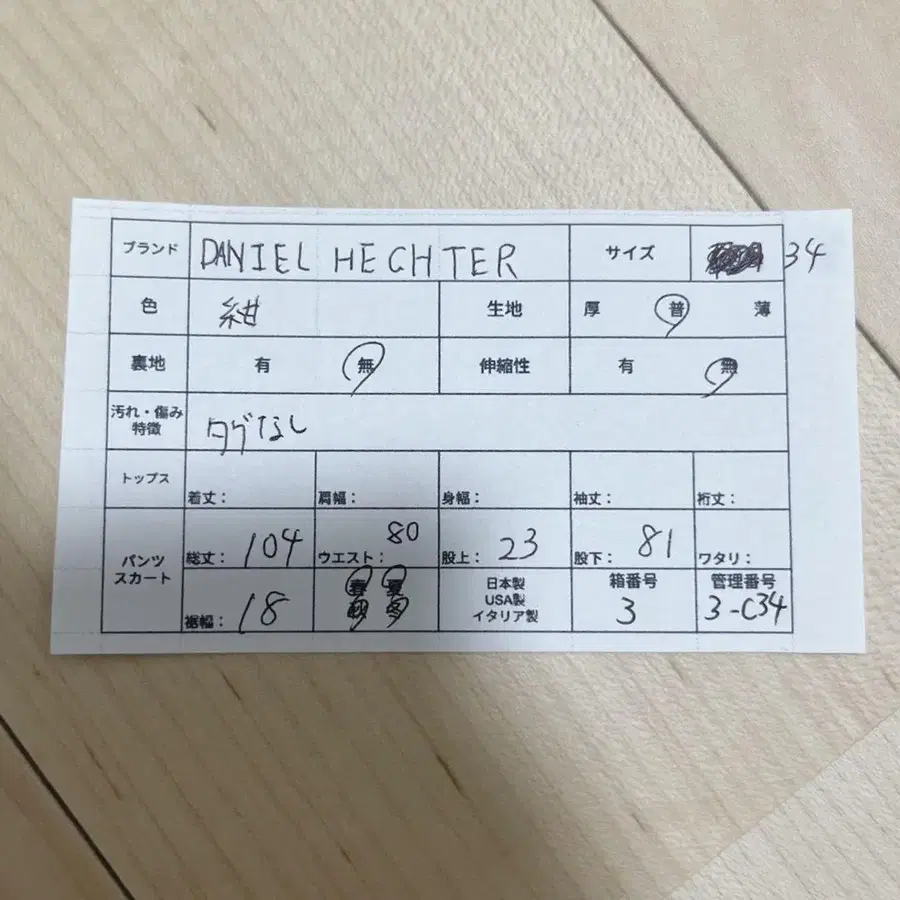 ブランド DANIEL HECHTER サイズ 34
色 紺 生地 厚 普 薄
裏地 有 無 伸縮性 有 無
汚れ・傷み
特徴 タグなし
トップス 着丈: 肩幅: 身幅: 袖丈: 裄丈:
パンツ
スカート
総丈: 104 ウエスト: 80 股上: 23 股下: 81 ワタリ:
裾幅: 18
春 夏
秋 冬
日本製
USA製
イタリア製
箱番号
3
管理番号
3-C34